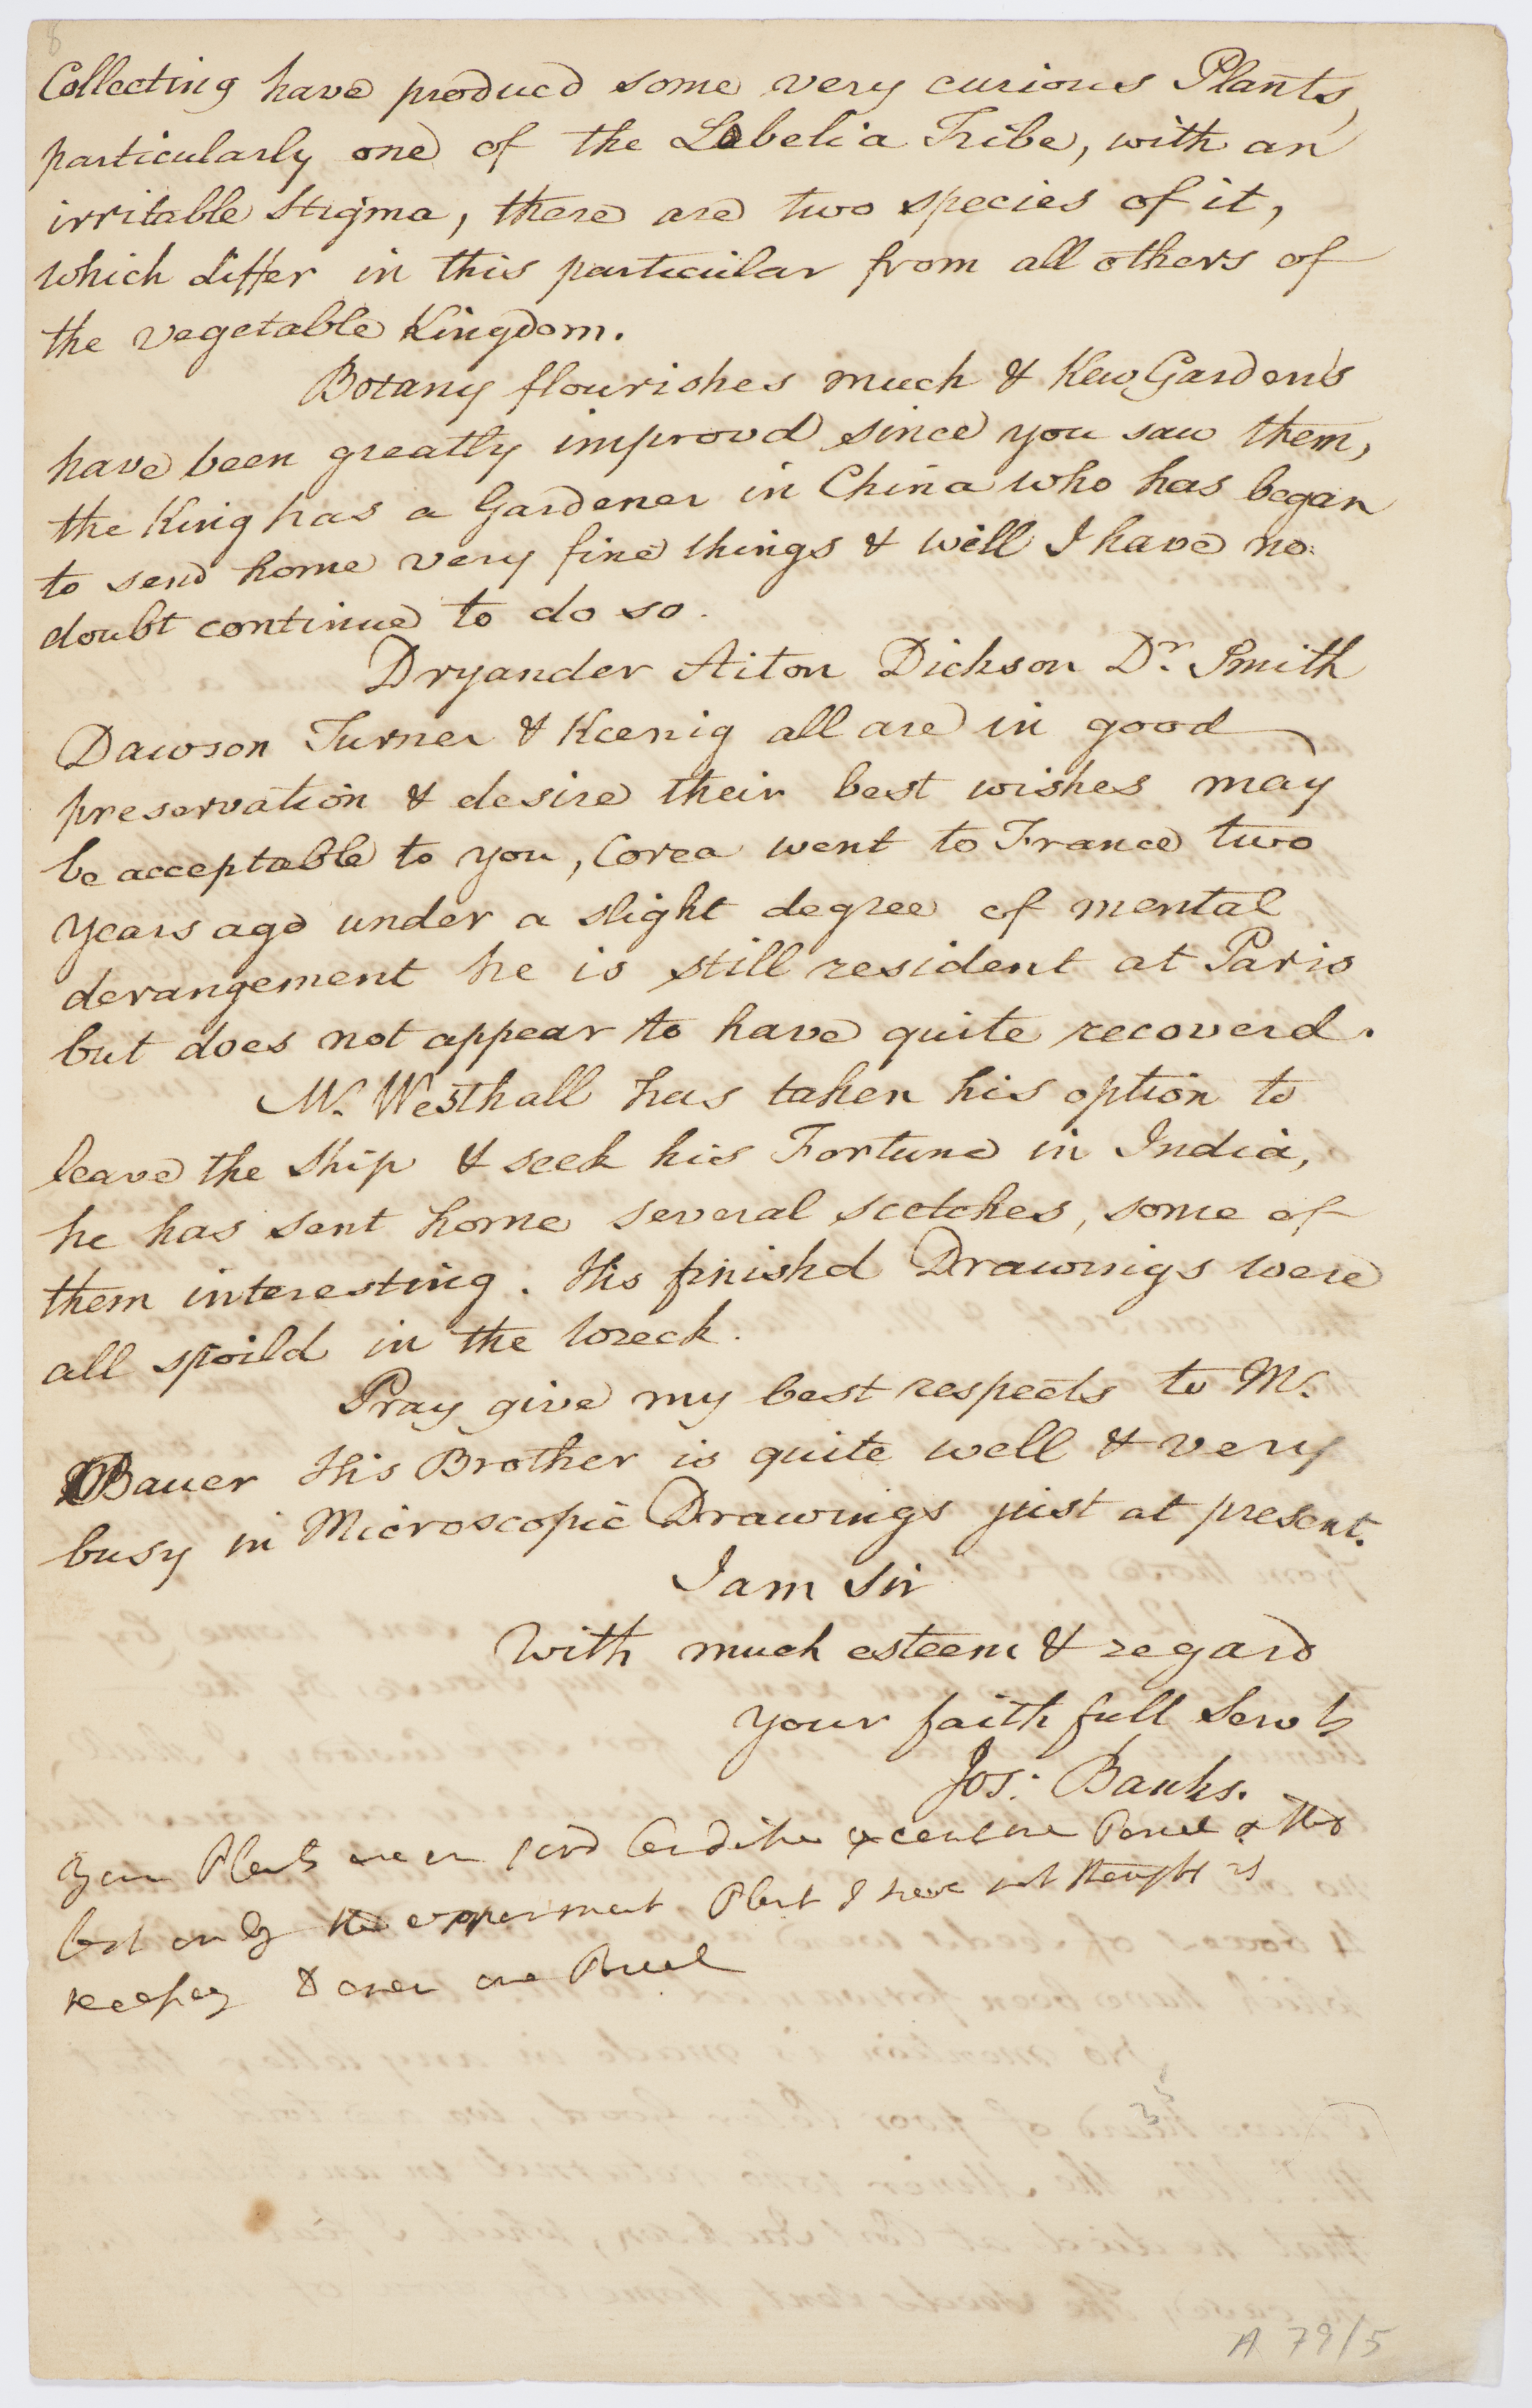 8
Collecting have produced some very curious Plants,
particularly one of the Lobelia Tribe, with an
irritable Stigma, there are two species of it,
which differ in this particular from all others of
the vegetable Kingdom.
Botany flourishes much & Kew Gardens
have been greatly improvd since you saw them,
the King has a Gardener in China who has began
to send home very fine things & will I have no
doubt continue to do so.
Dryander Aiton Dickson Dr. Smith
Dawson Turner & Kœnig all are in good
preservation & desire their best wishes may
be acceptable to you, Corea went to France two
years ago under a slight degree of mental
derangement he is still resident at Paris
but does not appear to have quite recoverd.
Mr. Westhall has taken his option to
leave the Ship & seek his Fortune in India,
he has sent home several scetches, some of
them interesting. His finishd Drawings were
all spoild in the wreck.
Pray give my best respects to Mr.
Bauer His Brother is quite well & very
busy in Microscopic Drawings just at present.
I am Sir
With much esteem & regard
your faithfull Servt
Jos: Banks.
Your Plants are in good Condition
but only the experiment Plant I have not thought it
keeping & over one Parcel
35
A 79/5